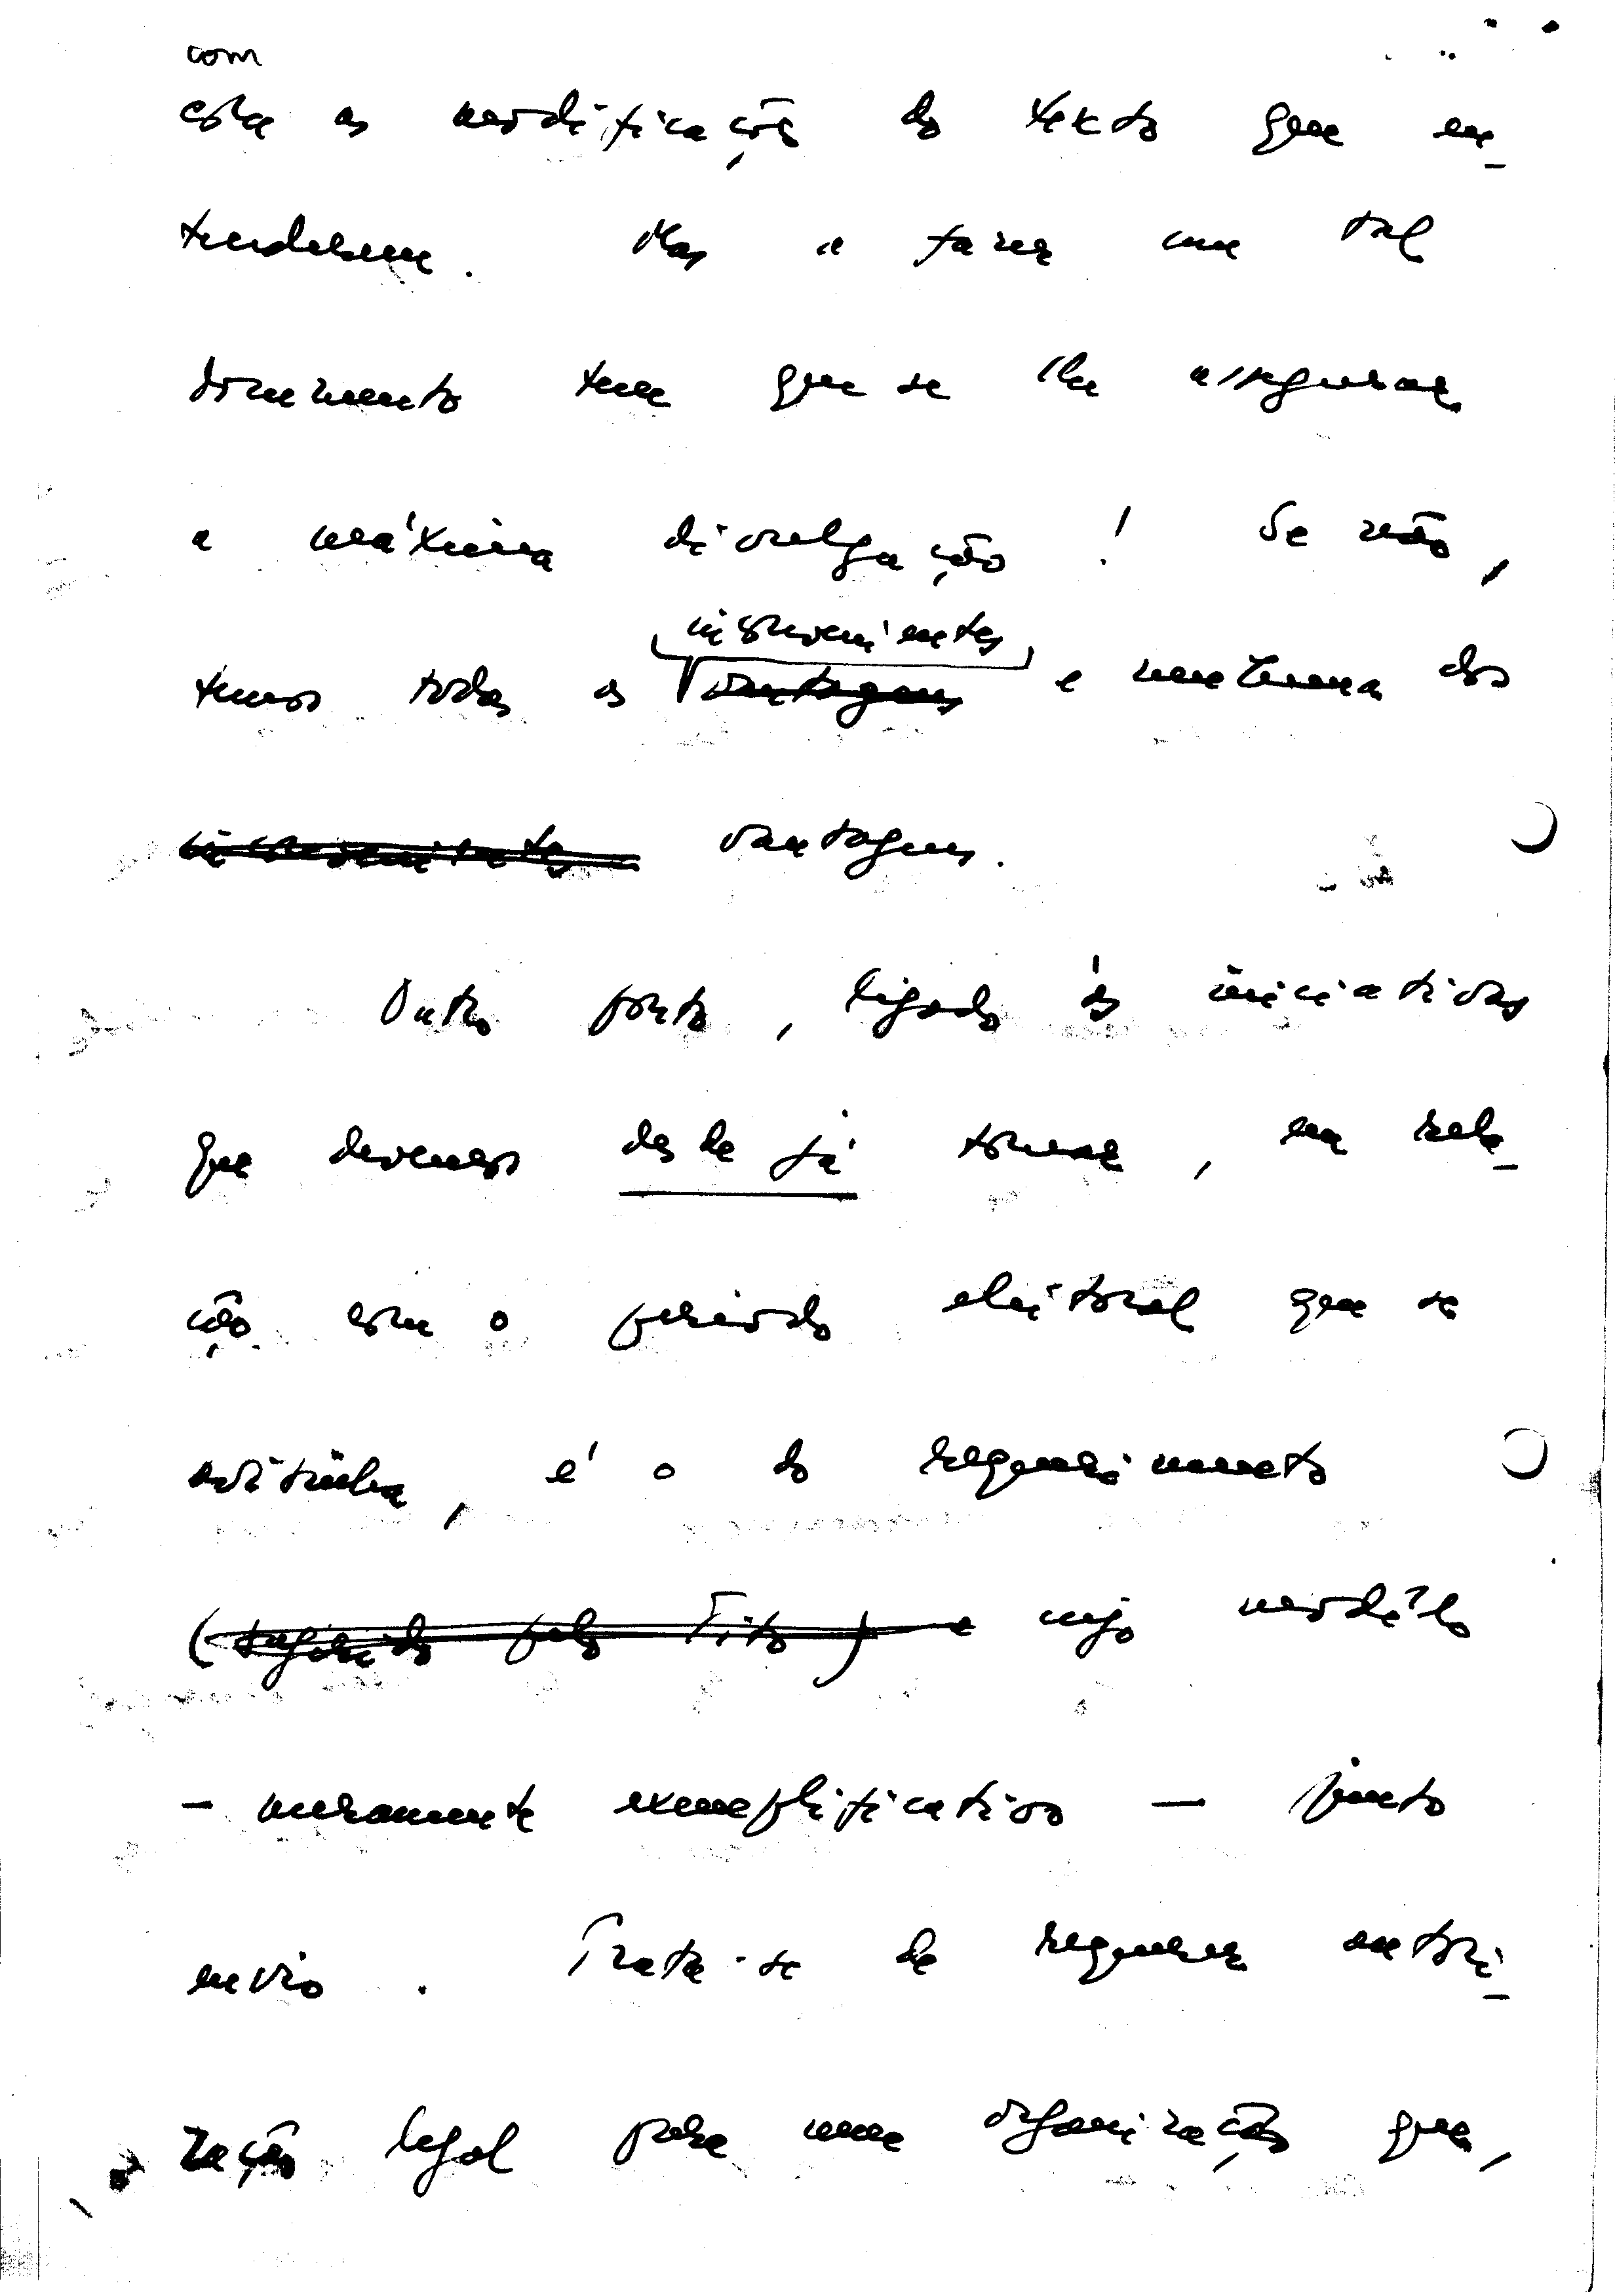 com
com as modificações do texto que en-
tenderem. Mas a fazer um tal
documento tem que se lhe assegurar
a máxima divulgação! Se não,
inconvenientes
temos todos os vantagens e nenhuma das
inconvenientes vantagens.
Outro ponto, ligado às iniciativas
que devemos desde já tomar, em rela-
ção com o período eleitoral que se
avizinha, é o do requerimento
(sugerido pelo Tito) e cujo modelo
– meramente exemplificativo – junto
envio. Trata-se de requerer autori-
zação legal para uma organização que,